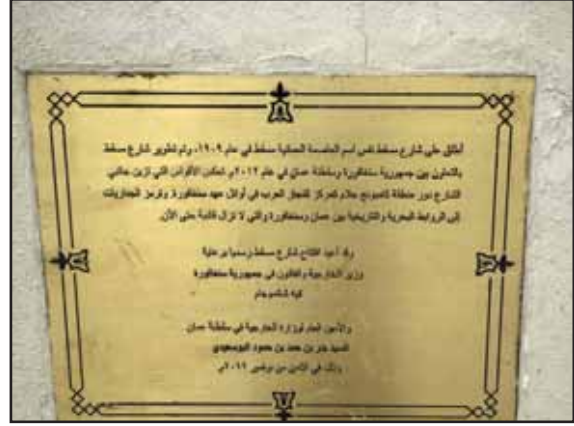 أطلق على شارع مسقط نفس اسم العاصمة العمانية مسقط في عام ١٩٠٩، وتم تطوير شارع مسقط
بالتعاون بين جمهورية سنغافورة وسلطنة عمان في عام ٢٠١٢م. تعكس الأقواس التي تزين جانبي
الشارع دور منطقة كامبونج جلام كمركز للتجار العرب في أوائل عهد سنغافورة. وترمز الجداريات
إلى الروابط البحرية والتاريخية بين عمان وسنغافورة والتي لا تزال قائمة حتى الآن.
وقد أعيد افتتاح شارع مسقط رسميا برعاية
وزير الخارجية والقانون في جمهورية سنغافورة
والأمين العام لوزارة الخارجية في سلطنة عمان
السيد بدر بن حمد بن حمود البوسعيدي
وذلك في الثامن من نوفمبر ٢٠١٢م